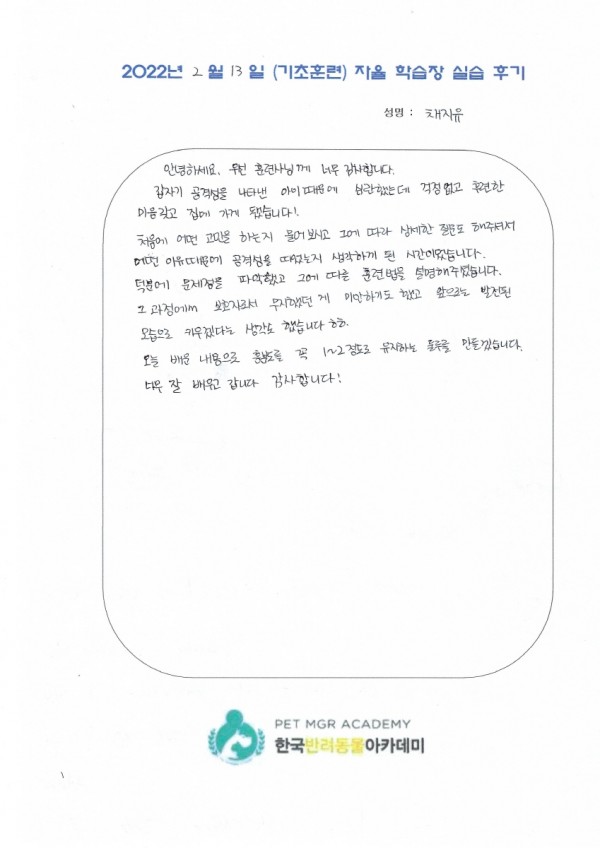 2022년 2월 13일 (기초훈련) 자율 학습장 실습 후기
성명 : 채지유
안녕하세요. 우선 훈련사님께 너무 감사합니다.
갑자기 공격성을 나타낸 아이 때문에 심란했는데 걱정없고 후련한
마음갖고 집에 가게 됐습니다!
처음에 어떤 고민을 하는지 물어보시고 그에 따라 상세한 질문도 해주셔서
어떤 이유때문에 공격성을 띠었는지 생각하게 된 시간이었습니다.
덕분에 문제점을 파악했고 그에 따른 훈련법을 설명해주셨습니다.
그 과정에서 보호자로서 무지했던 게 미안하기도 했고 앞으로는 발전된
모습으로 키우겠다는 생각도 했습니다 하하.
오늘 배운 내용으로 흥분도를 꼭 1~2정도로 유지하는 을 만들겠습니다.
너무 잘 배우고 갑니다 감사합니다!
PET MGR ACADEMY
한국반려동물아카데미